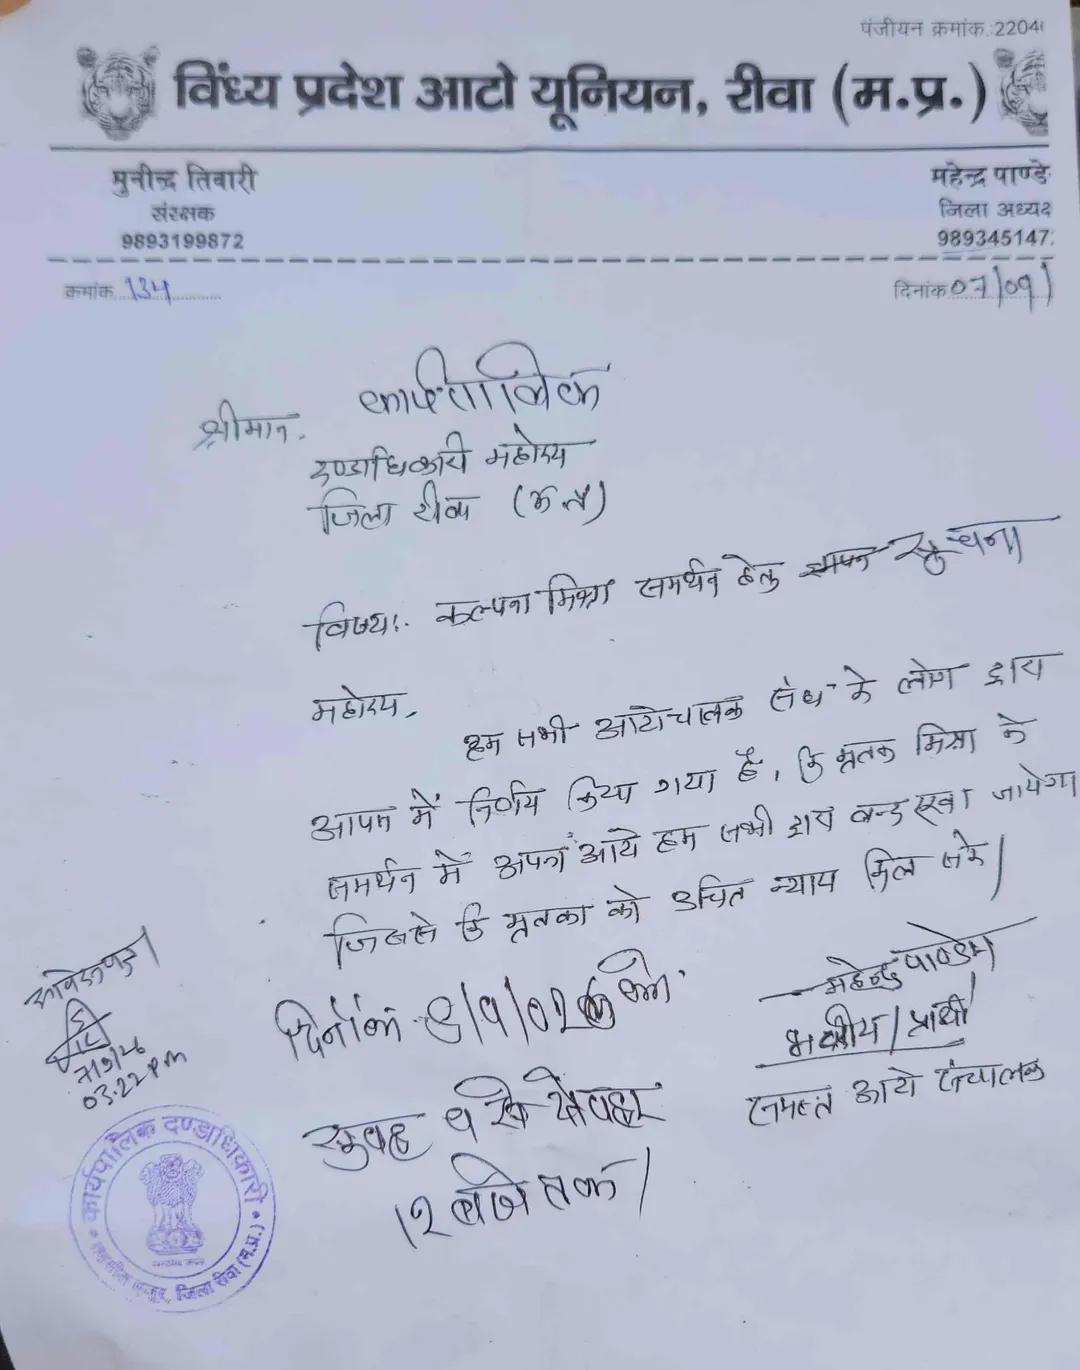 पंजीयन क्रमांक.:2204
विंध्य प्रदेश आटो यूनियन, रीवा (म.प्र.)
मुनीन्द्र तिवारी
संरक्षक
9893199872
महेन्द्र पाण्डे
जिला अध्यक्ष
989345147
क्रमांक 134
दिनांक 07/09/
श्रीमान.
दण्डाधिकारी महोदय
जिला रीवा
विषय:. कल्पना मिश्रा समर्थन हेतु सूचना
महोदय,
हम सभी आटोचालक संघ के लोग द्वारा
आपस में निर्णय किया गया है, कि मृतक मिश्रा के
समर्थन में अपना आटो हम सभी द्वारा बन्द रखा जायेगा
जिससे कि मृतका को उचित न्याय मिल सके|
दिनाँक
सुबह से दोपहर
12 बजे तक|
महेन्द्र पाण्डेय
भवदीय/प्रार्थी
समस्त आटो संचालक
03:22 PM
कार्यपालिक दण्डाधिकारी
जिला रीवा (म.प्र.)